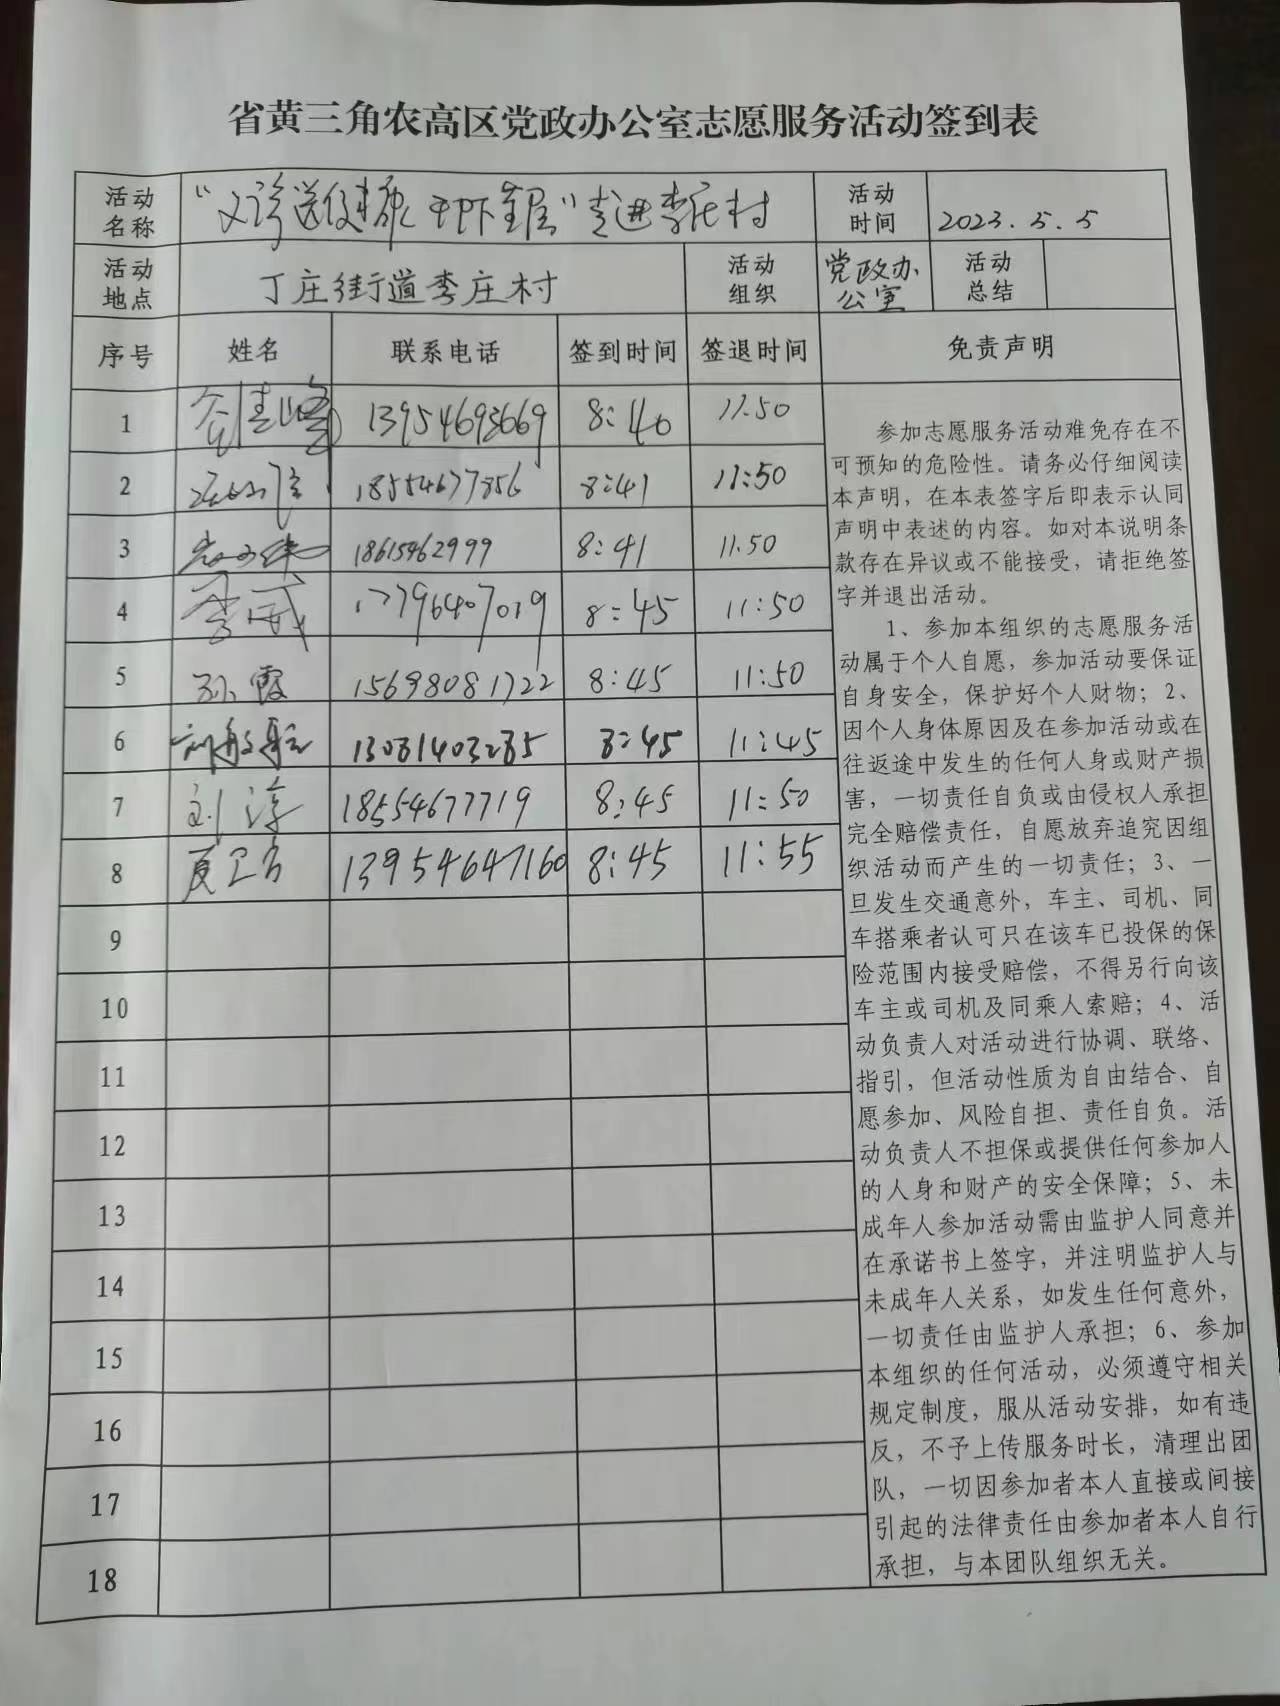 省黄三角农高区党政办公室志愿服务活动签到表
活动名称 “义诊送健康 走进李庄村 活动时间 2023.5.5
活动地点 丁庄街道李庄村 活动组织 党政办公室 活动总结
序号 姓名 联系电话 签到时间 签退时间 免责声明
1 13954693669 8:40 11.50
2 18554677856 8:41 11:50
3 18615462999 8:41 11.50
4 17796407019 8:45 11:50
5 孙霞 15698081722 8:45 11:50
6 13081403285 8:45 11:45
7 刘淳 18554677719 8:45 11:50
8 夏卫方 13954647160 8:45 11:55
9
10
11
12
13
14
15
16
17
18
参加志愿服务活动难免存在不
可预知的危险性。请务必仔细阅读
本声明，在本表签字后即表示认同
声明中表述的内容。如对本说明条
款存在异议或不能接受，请拒绝签
字并退出活动。
1、参加本组织的志愿服务活
动属于个人自愿，参加活动要保证
自身安全，保护好个人财物；2、
因个人身体原因及在参加活动或在
往返途中发生的任何人身或财产损
害，一切责任自负或由侵权人承担
完全赔偿责任，自愿放弃追究因组
织活动而产生的一切责任；3、一
旦发生交通意外，车主、司机、同
车搭乘者认可只在该车已投保的保
险范围内接受赔偿，不得另行向该
车主或司机及同乘人索赔；4、活
动负责人对活动进行协调、联络、
指引，但活动性质为自由结合、自
愿参加、风险自担、责任自负。活
动负责人不担保或提供任何参加人
的人身和财产的安全保障；5、未
成年人参加活动需由监护人同意并
在承诺书上签字，并注明监护人与
未成年人关系，如发生任何意外，
一切责任由监护人承担；6、参加
本组织的任何活动，必须遵守相关
规定制度，服从活动安排，如有违
反，不予上传服务时长，清理出团
队，一切因参加者本人直接或间接
引起的法律责任由参加者本人自行
承担，与本团队组织无关。